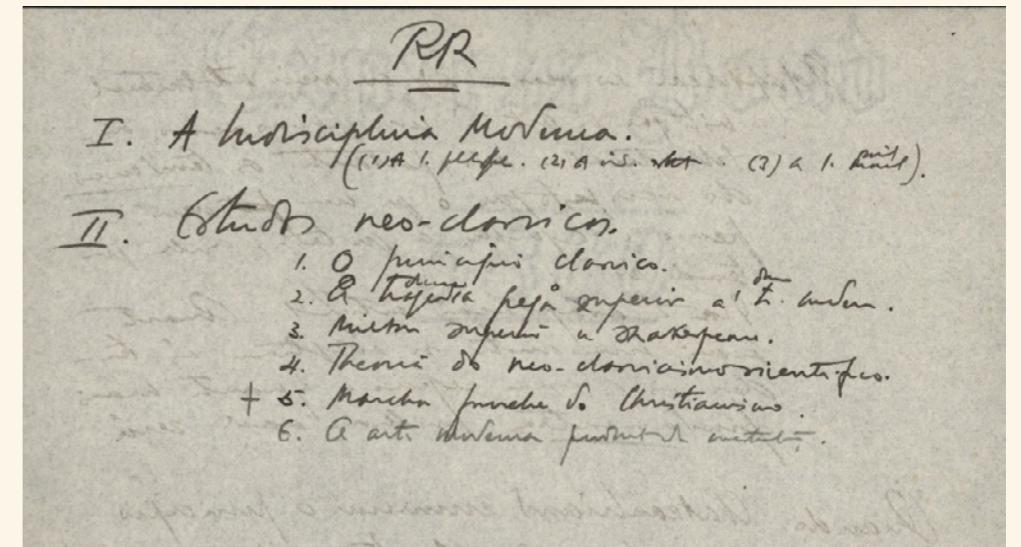 RR
I. A Indisciplina Moderna.
((1) A I. philos. (2) A ind. (3) a I.
II. Estudos neo-classicos.
1. O principio classico.
2. A tragedia grega superior a'
drama
3. Milton superior a Shakespeare.
4. Theoria do neo-classicismo scientifico.
+ 5. Marcha funebre do Christianismo.
6. A arte moderna